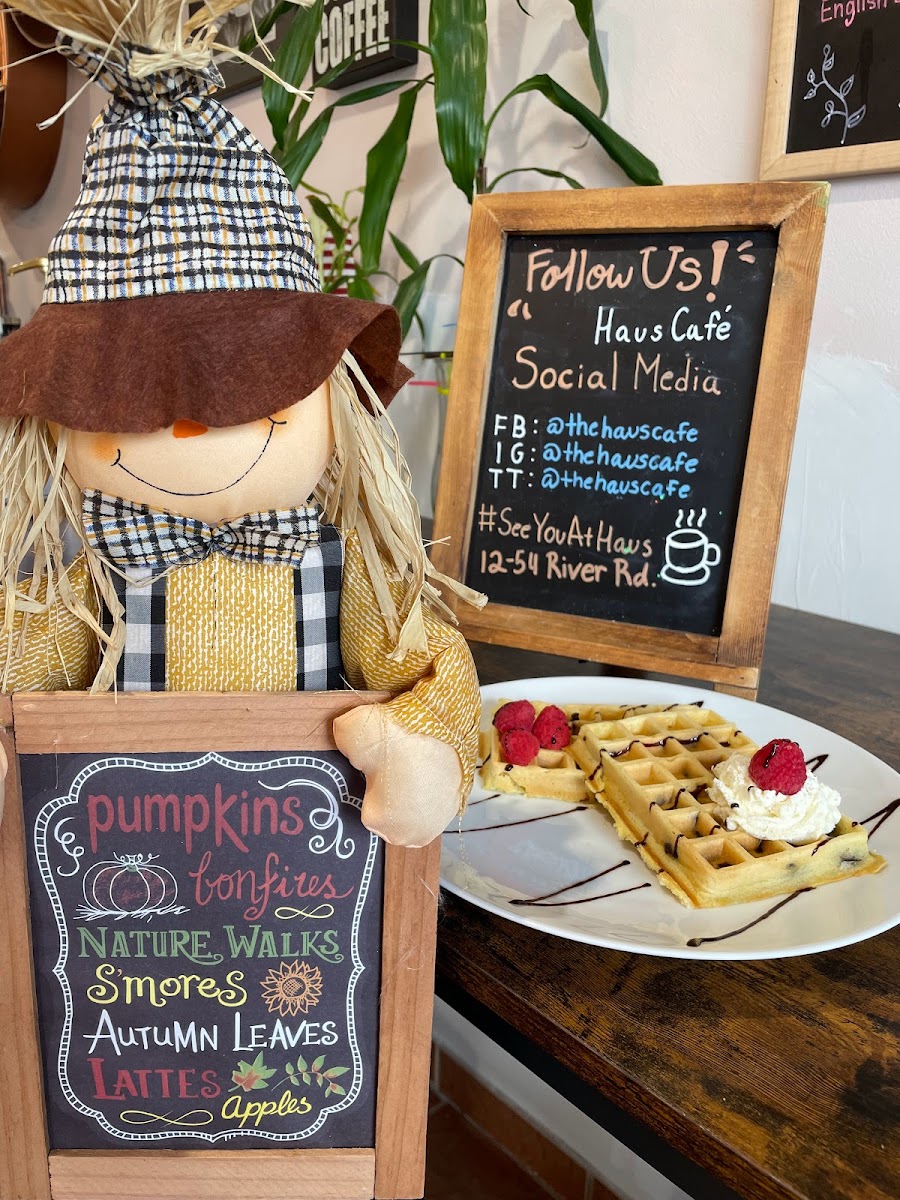 COFFEE
English
Follow Us!
Haus Café
Social Media
FB: @thehauscafe
IG: @thehauscafe
TT: @thehauscafe
#SeeYouAtHaus
12-54 River Rd.
pumpkins
bonfires
NATURE WALKS
S'mores
AUTUMN LEAVES
LATTES
Apples